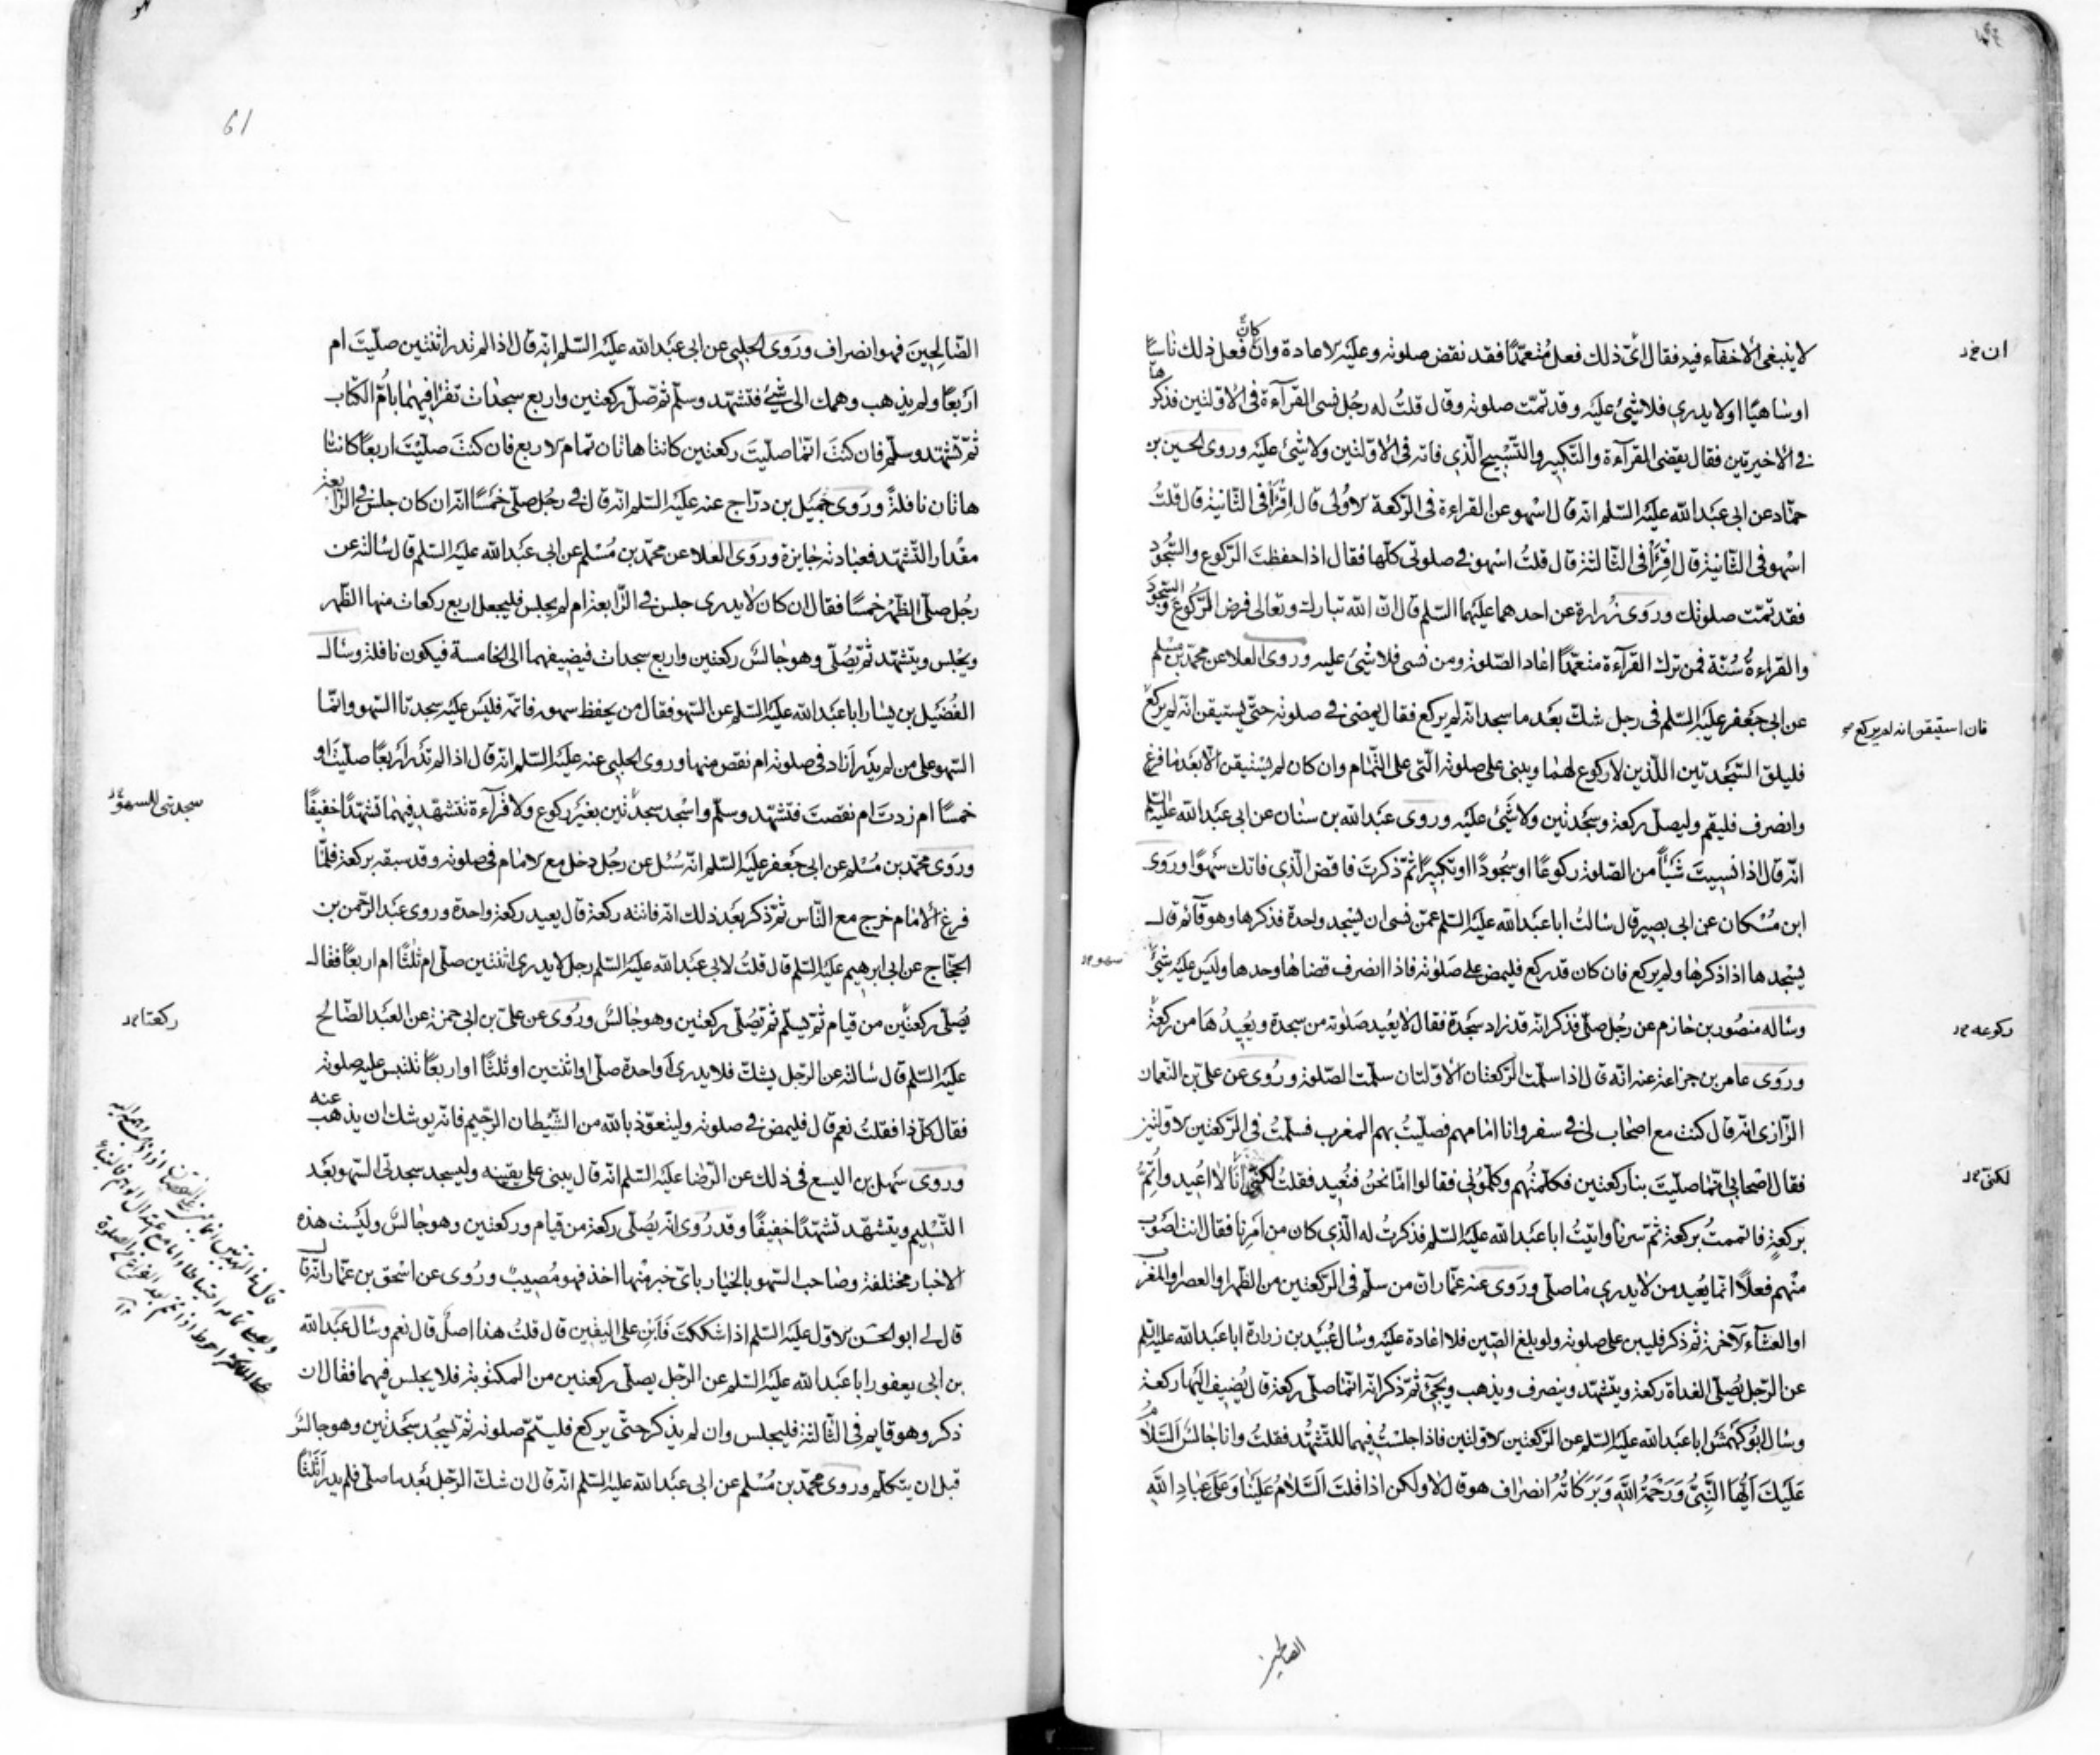 لا ينبغي الاخفآء فيه فقال اىّ ذلك فعل مُتعمّدًا فقد نقض صلوته وعليه الاعادة وان كان فعل ذلك ناسيًا
اوساهيًا اولايدري فلا شئ عليه وقد تمّت صلوته وقال قلتُ له رجُل نسى القرآءة فى الاوّلتين فذكرها
في الاخيرتين فقال يقضى القرآءة والتكبير والتّسبيح الّذي فاته فى الاوّلتين ولا شئ عليه وروى الحسين بن
حمّاد عن ابى عبد الله عليه السّلم انّه قال اسْهو عن القراءة فى الرّكعة الاولى قال اقْرَأ فى الثّانية قال قلتُ
اسْهو فى الثّانية قال اقْرَأ فى الثّالثة قال قلتُ اسْهو في صلوتى كلّها فقال اذا حفظتَ الرّكوع والسّجود
فقد تمّت صلوتك وروى زُرارة عن احدهما عليهما السّلم قال انّ الله تبارك وتعالى فرض الرّكوع والسّجود
والقراءةُ سُنّة فمن ترك القرآءة متعمّدًا اعاد الصّلوة ومن نسى فلا شئ عليه وروى العلا عن محمّد بن مُسْلم
عن ابى جعفر عليه السّلم فى رجل شكّ بعد ما سجد انّه لم يركع فقال يمضى في صلوته حتّى يستيقن انّه لم يركع
فان استيقن انه لم يركع
فليلق السّجدتين اللّتين لا ركوع لهما ويبنى على صلوته الّتى على التّمام وان كان لم يستيقن الّا بعد ما فرغ
وانصرف فليقم وليصلّ ركعة وسجدتين ولا شئ عليه وروى عبد الله بن سنان عن ابى عبد الله عليه السّلم
انّه قال اذا نسيتَ شَيْأً من الصّلوة ركوعًا اوسُجودًا اوتكبيرًا ثمّ ذكرت فاقض الّذي فاتك سَهوًا وروى
ابن مُسْكان عن ابى بصير قال سالتُ ابا عبد الله عليه السّلم عمّن نسى ان يسجد واحدة فذكرها وهو قآئم قال
يسْجدها اذا ذكرها ولم يركع فان كان قد ركع فليمض على صَلوته فاذا انصرف قضاها وحدها وليس عليه شئ
سهو
وساله منصُور بن حازم عن رجُل صلّى فذكر انّه قد زاد سجدة فقال لا يُعيد صَلوته من سجدة ويُعيدُها من ركعة
ركوعه
وروى عامر بن جزاعة عنه انّه قال اذا سلّمت الرّكعتان الاوّلتان سلمت الصّلوة ورُوى عن علىّ بن النّعمان
الرّازى انّه قال كنت مع اصحاب لى في سفر وانا امامهم فصلّيتُ بهم المغرب فسلّمتُ فى الرّكعتين الاوّلتين
فقال اصْحابى انّما صلّيتَ بنا ركعتين فكلّمتُهم وكلّمونى فقالوا امّا نحنُ فنُعيد فقلتُ لكنّى انا لا اُعيد واُتمُّ
لكنّى
بركعة فاتممتُ بركعة ثمّ سرنا واتيتُ ابا عبد الله عليه السّلم فذكرتُ له الّذي كان من امرنا فقال انت اصْوب
منهم فعلًا انّما يُعيد من لا يدري ما صلّى ورَوى عنه عمّار انّ من سلّم فى الرّكعتين من الظّهر او العصر او المغرب
او العشآء الآخرة ثمّ ذكر فليبن على صلوته ولو بلغ الصّين فلا اعادة عليه وسال عُبيد بن زرارة ابا عبد الله عليه السّلم
عن الرّجل يُصلّى الغداة ركعة ويتشهّد وينصرف ويذهب ويجئ ثمّ ذكر انّه انّما صلّى ركعة قال يُضيف اليها ركعة
وسال ابُو كهْمَش ابا عبد الله عليه السّلم عن الرّكعتين الاوّلتين فاذا جلسْتُ فيهما للتّشهّد فقلتُ وانا جالسٌ السّلامُ
عَلَيكَ اَيُّها النَّبِيُّ وَرَحْمَةُ اللَّهِ وَبَرَكاتُهُ انصراف هو قال لا ولكن اذا قلتَ السَّلامُ عَلَيْنا وَعَلى عِبادِ اللَّهِ
الصالحين
61
الصّالحِينَ فهو انصراف ورَوى الحلبى عن ابى عبد الله عليه السّلم انّه قال اذا لم تدر اثنتين صلّيتَ ام
اربعًا ولم يذهب وهمك الى شئ فتشهّد وسلّم ثمّ صلّ ركعتين واربع سجدات تقرأ فيهما بامّ الكتاب
ثمّ تشهّد وسلّم فان كنتَ انّما صلّيتَ ركعتين كانتا هاتان تمام الاربع فان كنتَ صلّيْتَ اربعًا كانتا
هاتان نافلةً ورَوى جميل بن درّاج عنه عليه السّلم انّه قال في رجُل صلّى خمسًا انّه ان كان جلس في الرّابعة
مقدار التّشهّد فعبادته جايزة وروَى العلا عن محمّد بن مُسْلم عن ابى عبد الله عليه السّلم قال سالته عن
رجُل صلّى الظّهر خمسًا فقال ان كان لا يدرى جلس في الرّابعة ام لم يجلس فليجعل اربع ركعات منها الظّهر
ويجْلس ويتشهّد ثمّ يُصلّى وهو جالسٌ ركعتين واربع سجدات فيضيفهما الى الخامسة فيكون نافلة وسال
الفُضَيل بن يسار ابا عبد الله عليه السّلم عن السّهو فقال من يحفظ سهوه فاتمّه فليس عليه سجدتا السّهو وانّما
السّهو على من لم يدر ازاد فى صلوته ام نقص منها وروى الحلبى عنه عليه السّلم انّه قال اذا لم تدر اربعًا صلّيتَ او
خمسًا ام زدتَ ام نقصتَ فتشهّد وسلّم واسْجد سجدتين بغير ركوع ولا قرآءة تتشهّد فيهما تشهّدًا خفيفًا
سجدتى السهو
ورَوى محمّد بن مُسْلم عن ابى جعفر عليه السّلم انّه سُئل عن رجُل دخل مع الامام فى صلوته وقد سبقه بركعة فلمّا
فرغ الامام خرج مع النّاس ثمّ ذكر بعد ذلك انّه فاتته ركعة قال يعيد ركعة واحدة وروى عبد الرّحمن بن
الحجّاج عن ابى ابرهيم عليه السّلم قال قلتُ لابى عبد الله عليه السّلم رجل لا يدرى اثنتين صلّى ام ثلثًا ام اربعًا فقال
يُصلّى ركعتين من قيام ثمّ يُسلّم ثمّ يُصلّى ركعتين وهو جالسٌ ورُوى عن علىّ بن ابى حمزة عن العبد الصّالح
ركعتا
عليه السّلم قال سالته عن الرّجل يشكّ فلا يدرى أواحدة صلّى او اثنتين او ثلثًا او اربعًا تلتبس عليه صلوته
فقال كلّ ذا فقلتُ نعم قال فليمض في صلوته وليتعوّذ بالله من الشّيطان الرّجيم فانّه يوشك ان يذهب عنه
وروى سَهل بن اليسع فى ذلك عن الرّضا عليه السّلم انّه قال يبنى على يقينه وليسجد سجدتى السّهو بعد
التّسْليم ويتشهّد تشهّدًا خفيفًا وقد رُوى انّه يُصلّى ركعة من قيام وركعتين وهو جالسٌ وليست هذه
الاخبار مختلفة وصاحب السّهو بالخيار باىّ خبر منها اخذ فهو مُصيبٌ ورُوى عن اسْحق بن عمّار انّه قال
قال لى ابو الحسَن الاوّل عليه السّلم اذا شككتَ فَابْنِ على اليقين قال قلتُ هذا اصلٌ قال نعم وسال عبد الله
بن ابى يعفور ابا عبد الله عليه السّلم عن الرّجل يصلّى ركعتين من المكتوبة فلا يجلس فيهما فقال ان
ذكر وهو قايم فى الثّالثة فليجلس وان لم يذكر حتّى يركع فليتمّ صلوته ثمّ يسجُد سجدتين وهو جالسٌ
قبل ان يتكلّم وروى محمّد بن مُسْلم عن ابى عبد الله عليه السّلم انّه قال ان شكّ الرّجل بعد ما صلّى فلم يدر أثلثًا